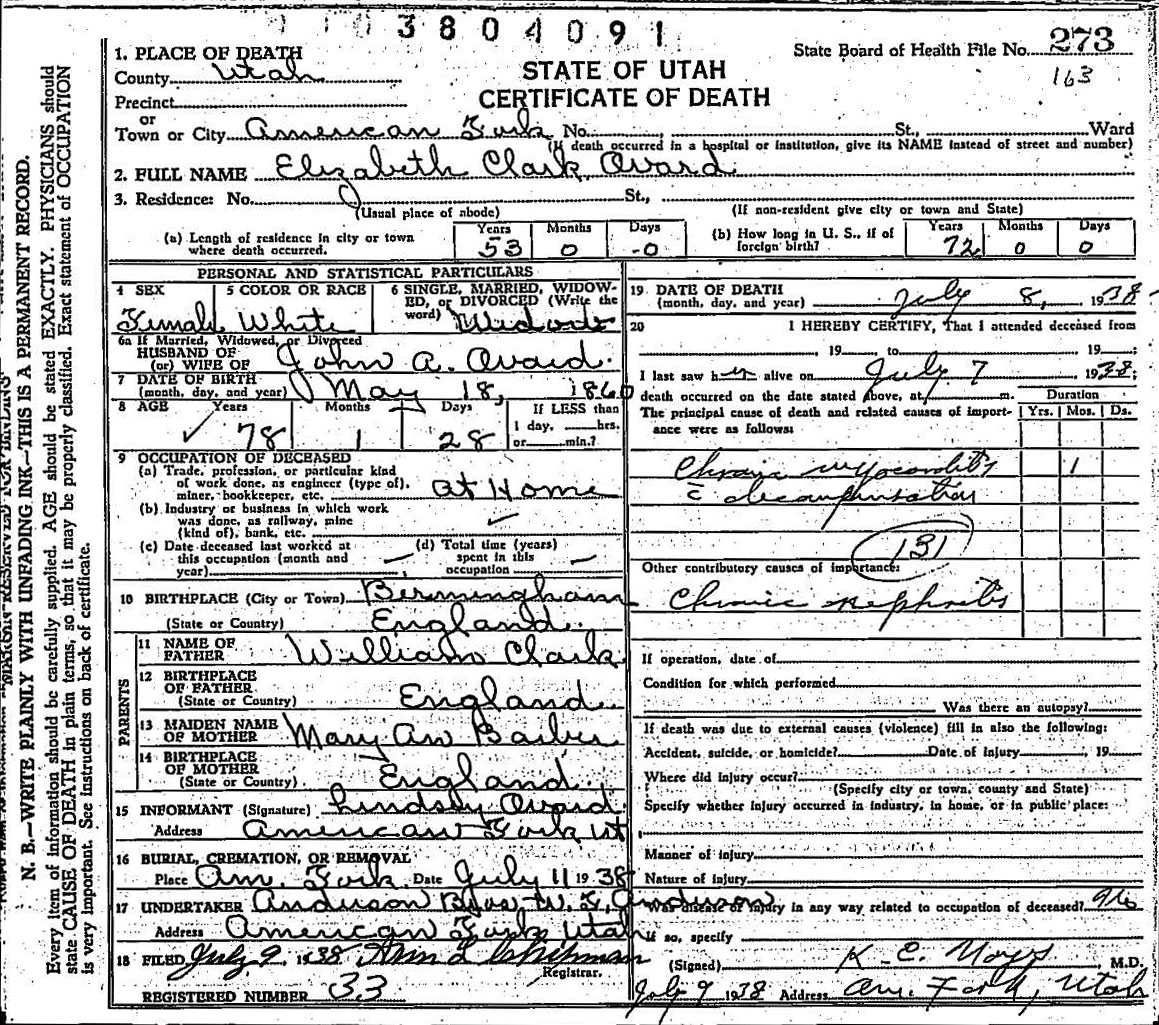 3804091
1. PLACE OF DEATH
County Utah
Precinct
or
Town or City American Fork No. St., Ward
(If death occurred in a hospital or institution, give its NAME instead of street and number)
State Board of Health File No. 273
163
STATE OF UTAH
CERTIFICATE OF DEATH
2. FULL NAME Elizabeth Clark Avard
3. Residence: No. St.,
(Usual place of abode) (If non-resident give city or town and State)
(a) Length of residence in city or town where death occurred. Years 53 Months 0 Days -0
(b) How long in U. S., if of foreign birth? Years 72 Months 0 Days 0
PERSONAL AND STATISTICAL PARTICULARS
4 SEX 5 COLOR OR RACE 6 SINGLE, MARRIED, WIDOW-
ED, or DIVORCED (Write the
word)
Female White Widow
6a If Married, Widowed, or Divorced
HUSBAND OF
(or) WIFE OF John A. Avard.
7 DATE OF BIRTH
(month, day, and year) May 18, 1860
8 AGE Years Months Days If LESS than
1 day, hrs.
or min.?
78 1 28
9 OCCUPATION OF DECEASED
(a) Trade, profession, or particular kind
of work done, as engineer (type of),
miner, bookkeeper, etc. at Home
(b) Industry or business in which work
was done, as railway, mine
(kind of), bank, etc.
(c) Date deceased last worked at
this occupation (month and
year)
(d) Total time (years)
spent in this
occupation
10 BIRTHPLACE (City or Town) Birmingham
(State or Country) England.
PARENTS
11 NAME OF
FATHER William Clark
12 BIRTHPLACE
OF FATHER
(State or Country) England.
13 MAIDEN NAME
OF MOTHER Mary An Barber
14 BIRTHPLACE
OF MOTHER
(State or Country) England.
15 INFORMANT (Signature) Lindsey Avard.
Address American Fork Ut
16 BURIAL, CREMATION, OR REMOVAL
Place Am. Fork. Date July 11 1938
17 UNDERTAKER Anderson Bros W. F. Anderson
Address American Fork Utah
18 FILED July 9. 1938
Registrar.
REGISTERED NUMBER 33
19 DATE OF DEATH
(month, day, and year) July 8, 1938
20 I HEREBY CERTIFY, That I attended deceased from
, 19 to , 19 ;
I last saw her alive on July 7 1938;
death occurred on the date stated above, at m.
The principal cause of death and related causes of import-
ance were as follows:
Duration
Yrs. Mos. Ds.
Chronic myocarditis 1
c̄ decompensation
131
Other contributory causes of importance:
Chronic nephritis
If operation, date of
Condition for which performed
Was there an autopsy?
If death was due to external causes (violence) fill in also the following:
Accident, suicide, or homicide? Date of injury , 19
Where did injury occur?
(Specify city or town, county and State)
Specify whether injury occurred in industry, in home, or in public place:
Manner of injury
Nature of injury
Was disease or injury in any way related to occupation of deceased? no
If so, specify
(Signed) K. E. M.D.
July 9 1938 Address Am. Fork, Utah
N. B.—WRITE PLAINLY WITH UNFADING INK—THIS IS A PERMANENT RECORD.
Every item of information should be carefully supplied. AGE should be stated EXACTLY. PHYSICIANS should
state CAUSE OF DEATH in plain terms, so that it may be properly classified. Exact statement of OCCUPATION
is very important. See instructions on back of certificate.